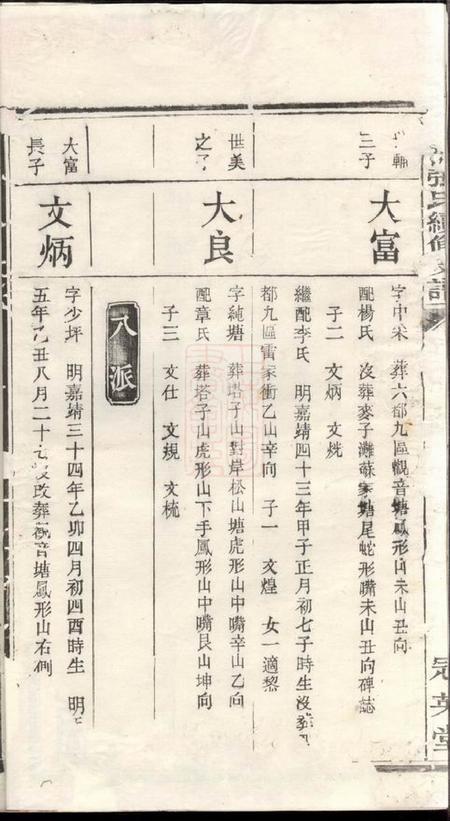 張氏續修支譜
冠英堂
輔三子
大富
字中米 葬六都九區觀音塘鳳形山未山丑向
配楊氏 沒葬麥子灘蘇家塘尾蛇形嘴未山丑向碑誌
子二 文炳 文烑
繼配李氏 明嘉靖四十三年甲子正月初七子時生沒葬
都九區雷家衝乙山辛向 子一 文煌 女一適黎
世美之子
大良
字純塘 葬塔子山對岸松山塘虎形山中嘴辛山乙向
配章氏 葬塔子山虎形山下手鳳形山中嘴艮山坤向
子三 文仕 文規 文梳
八派
大富長子
文炳
字少坪 明嘉靖三十四年乙卯四月初四酉時生 明
五年乙丑八月二十 沒改葬觀音塘鳳形山右側